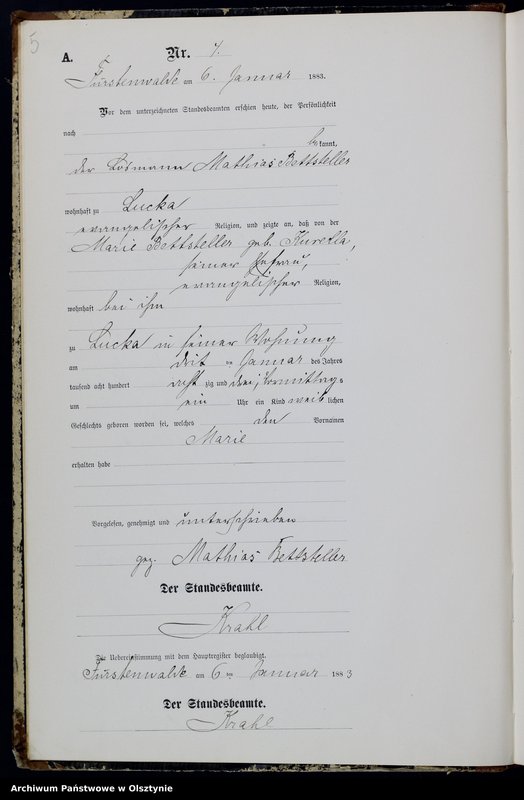 5
A.
Nr. 7.
Fürstenwalde am 6. Januar 1883.
Vor dem unterzeichneten Standesbeamten erschien heute, der Persönlichkeit
nach
bekannt,
der Losmann Mathias Bettsteller
wohnhaft zu Lucka
evangelischer Religion, und zeigte an, daß von der
Marie Bettsteller geb. Kurella,
seiner Ehefrau,
evangelischer Religion,
wohnhaft bei ihm
zu Lucka in seiner Wohnung
am dritten Januar des Jahres
tausend acht hundert achtzig und drei, Vormittags
um ein Uhr ein Kind weiblichen
Geschlechts geboren worden sei, welches den Vornamen
Marie
erhalten habe
Vorgelesen, genehmigt und unterschrieben
gez. Mathias Bettsteller
Der Standesbeamte.
Krahl
Die Uebereinstimmung mit dem Hauptregister beglaubigt.
Fürstenwalde am 6 ten Januar 1883
Der Standesbeamte.
Krahl
Archiwum Państwowe w Olsztynie